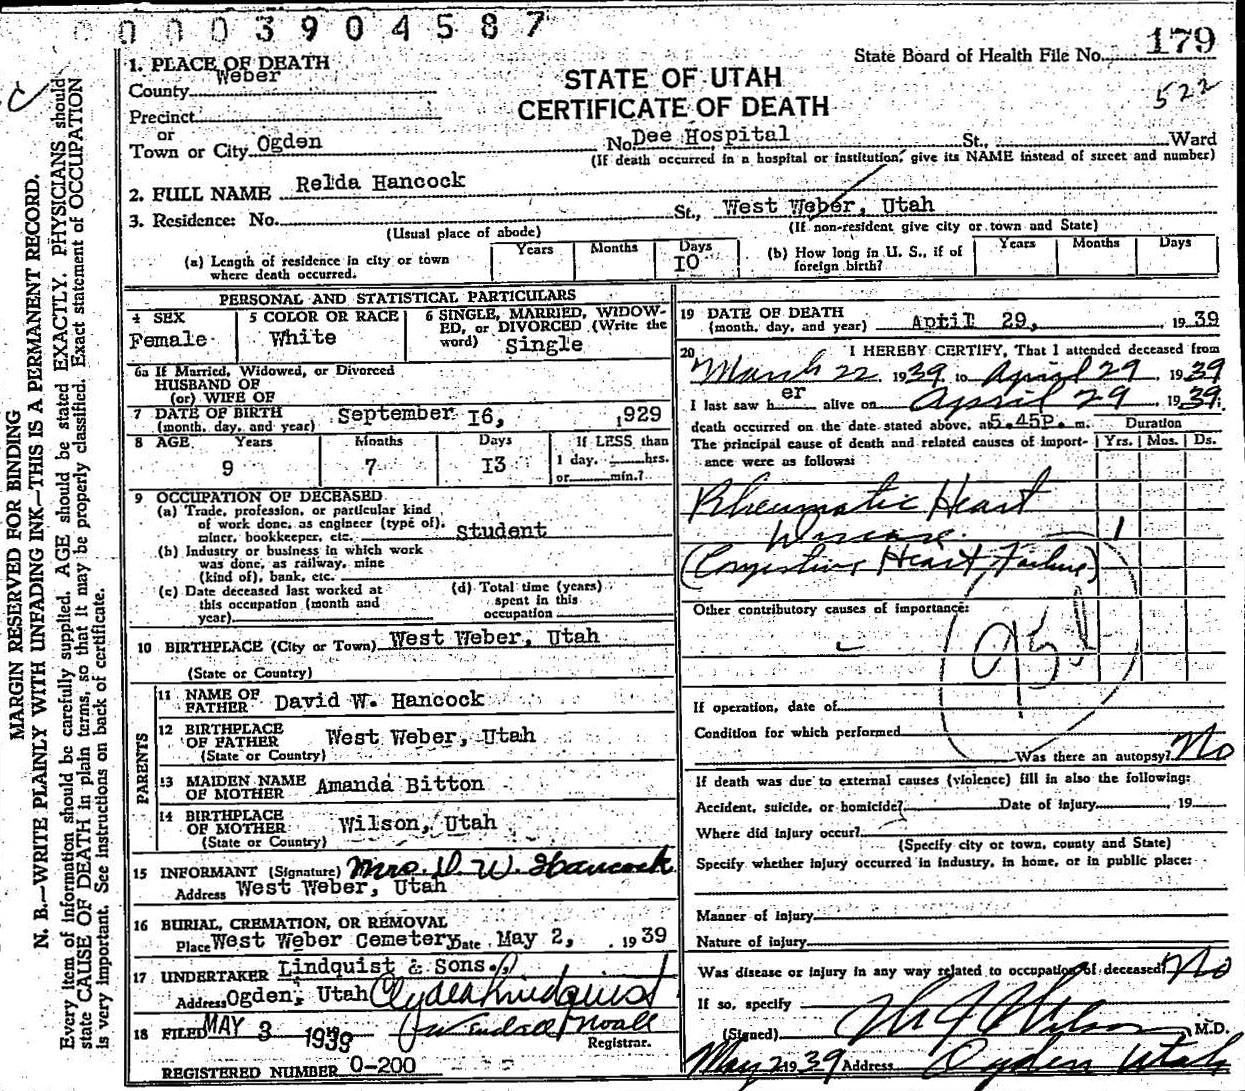 0003904587
State Board of Health File No. 179
522
STATE OF UTAH
CERTIFICATE OF DEATH
1. PLACE OF DEATH
County Weber
Precinct
or
Town or City Ogden No. Dee Hospital St., Ward
(If death occurred in a hospital or institution, give its NAME instead of street and number)
2. FULL NAME Relda Hancock
3. Residence: No. St., West Weber, Utah
(Usual place of abode) (If non-resident give city or town and State)
(a) Length of residence in city or town where death occurred. Years Months Days 10
(b) How long in U. S., if of foreign birth? Years Months Days
PERSONAL AND STATISTICAL PARTICULARS
4 SEX Female
5 COLOR OR RACE White
6 SINGLE, MARRIED, WIDOWED, or DIVORCED (Write the word) Single
6a If Married, Widowed, or Divorced
HUSBAND OF
(or) WIFE OF
7 DATE OF BIRTH (month, day, and year) September 16, 1929
8 AGE Years 9 Months 7 Days 13 If LESS than 1 day, hrs. or min.?
9 OCCUPATION OF DECEASED
(a) Trade, profession, or particular kind
of work done, as engineer (type of),
miner, bookkeeper, etc. Student
(b) Industry or business in which work
was done, as railway, mine
(kind of), bank, etc.
(c) Date deceased last worked at
this occupation (month and
year)
(d) Total time (years)
spent in this
occupation
10 BIRTHPLACE (City or Town) West Weber, Utah
(State or Country)
PARENTS
11 NAME OF FATHER David W. Hancock
12 BIRTHPLACE OF FATHER West Weber, Utah
(State or Country)
13 MAIDEN NAME OF MOTHER Amanda Bitton
14 BIRTHPLACE OF MOTHER Wilson, Utah
(State or Country)
15 INFORMANT (Signature) Mrs. D. W. Hancock
Address West Weber, Utah
16 BURIAL, CREMATION, OR REMOVAL
Place West Weber Cemetery Date May 2, 1939
17 UNDERTAKER Lindquist & Sons.
Address Ogden, Utah Clyde Lindquist
18 FILED MAY 3 1939
Registrar.
REGISTERED NUMBER 0-200
19 DATE OF DEATH (month, day, and year) April 29, 1939
20 I HEREBY CERTIFY, That I attended deceased from
March 22 1939 to April 29, 1939
I last saw her alive on April 29 1939
death occurred on the date stated above, at 5.45P. m.
The principal cause of death and related causes of importance were as follows:
Duration
Yrs. Mos. Ds.
Rheumatic Heart
Disease. 1
(Congestive Heart Failure)
Other contributory causes of importance:
If operation, date of
Condition for which performed
Was there an autopsy? No
If death was due to external causes (violence) fill in also the following:
Accident, suicide, or homicide? Date of injury 19
Where did injury occur?
(Specify city or town, county and State)
Specify whether injury occurred in industry, in home, or in public place:
Manner of injury
Nature of injury
Was disease or injury in any way related to occupation of deceased? No
If so, specify
(Signed) Wilson, M.D.
May 2 1939 Address Ogden Utah
MARGIN RESERVED FOR BINDING
N. B.—WRITE PLAINLY WITH UNFADING INK—THIS IS A PERMANENT RECORD.
Every item of information should be carefully supplied. AGE should be stated EXACTLY. PHYSICIANS should
state CAUSE OF DEATH in plain terms, so that it may be properly classified. Exact statement of OCCUPATION
is very important. See instructions on back of certificate.